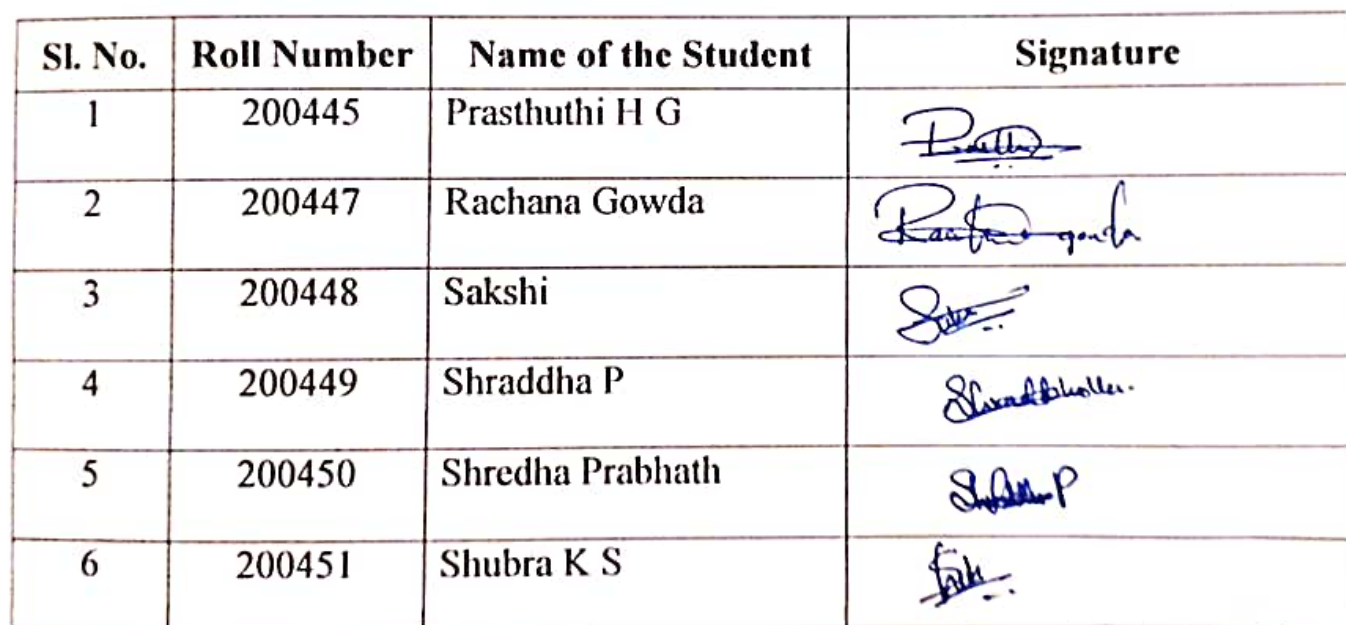 Sl. No. Roll Number Name of the Student Signature
1 200445 Prasthuthi H G
2 200447 Rachana Gowda
3 200448 Sakshi
4 200449 Shraddha P
5 200450 Shredha Prabhath
6 200451 Shubra K S